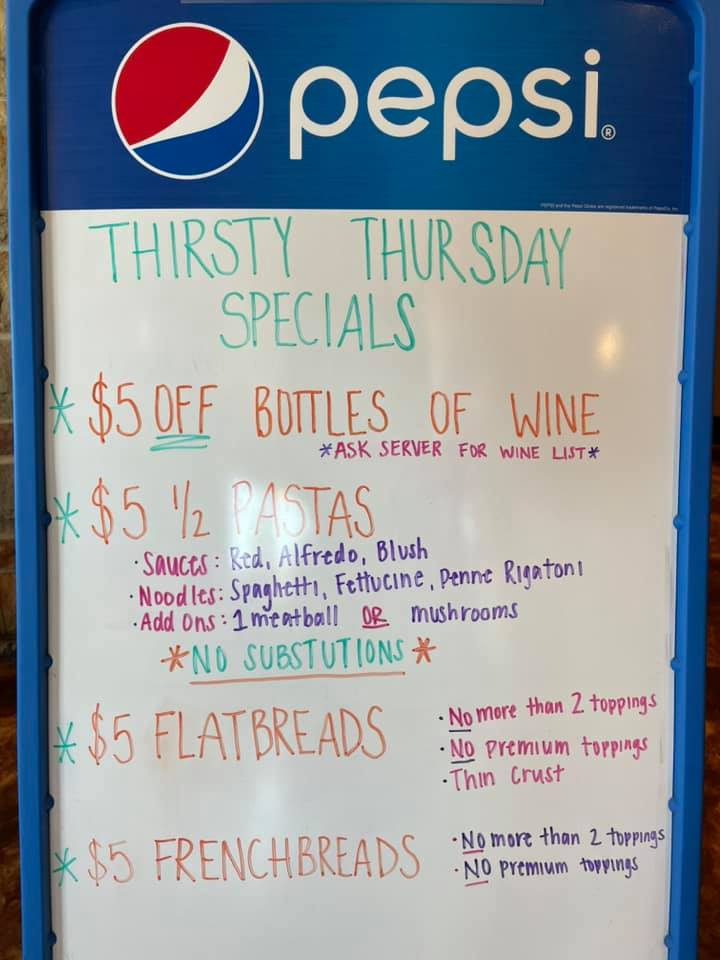 pepsi®
THIRSTY THURSDAY
SPECIALS
* $5 OFF BOTTLES OF WINE
*ASK SERVER FOR WINE LIST*
* $5 1/2 PASTAS
· Sauces: Red, Alfredo, Blush
· Noodles: Spaghetti, Fettucine, Penne Rigatoni
· Add Ons: 1 meatball OR mushrooms
*NO SUBSTUTIONS*
* $5 FLATBREADS
· No more than 2 toppings
· No premium toppings
· Thin Crust
* $5 FRENCHBREADS
· No more than 2 toppings
· NO premium toppings